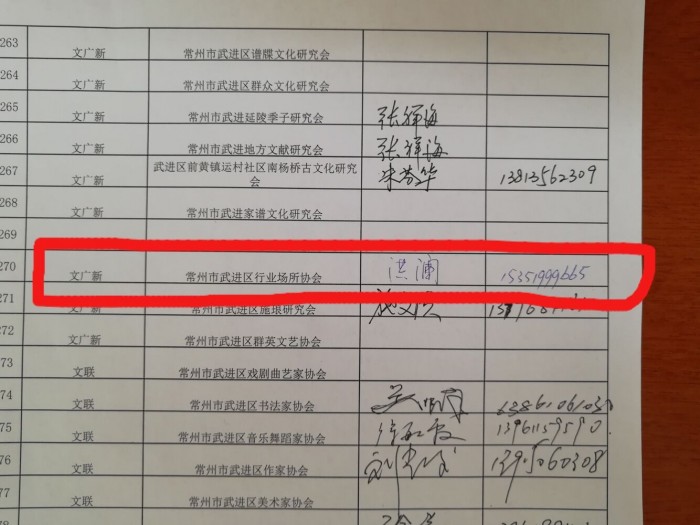 263 文广新 常州市武进区谱牒文化研究会
264 文广新 常州市武进区群众文化研究会
265 文广新 常州市武进延陵季子研究会 张祥海
266 文广新 常州市武进地方文献研究会 张祥海
267 文广新 武进区前黄镇运村社区南杨桥古文化研究会 朱芬华 13813562309
268 文广新 常州市武进家谱文化研究会
269
270 文广新 常州市武进区行业场所协会 洪澜 15351999665
271 文广新 常州市武进区施琅研究会
272 文广新 常州市武进区群英文艺协会
73 文联 常州市武进区戏剧曲艺家协会
74 文联 常州市武进区书法家协会
75 文联 常州市武进区音乐舞蹈家协会 13961159590
76 文联 常州市武进区作家协会 13905060308
77 文联 常州市武进区美术家协会
78